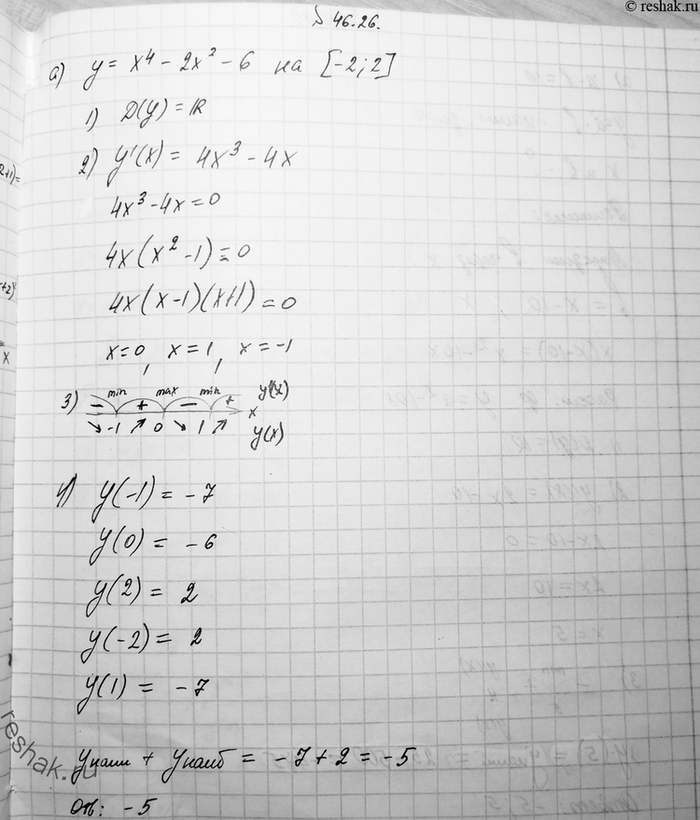 © reshak.ru
§ 46.26.
а) y = x⁴ - 2x² - 6 на [-2; 2]
1) D(y) = R
2) y'(x) = 4x³ - 4x
4x³ - 4x = 0
4x(x² - 1) = 0
4x(x-1)(x+1) = 0
x=0, x=1, x=-1
3) min max min y'(x)
- + - + x
↘ -1 ↗ 0 ↘ 1 ↗ y(x)
4) y(-1) = -7
y(0) = -6
y(2) = 2
y(-2) = 2
y(1) = -7
yнаим + yнаиб = -7 + 2 = -5
Отв: -5
reshak.ru